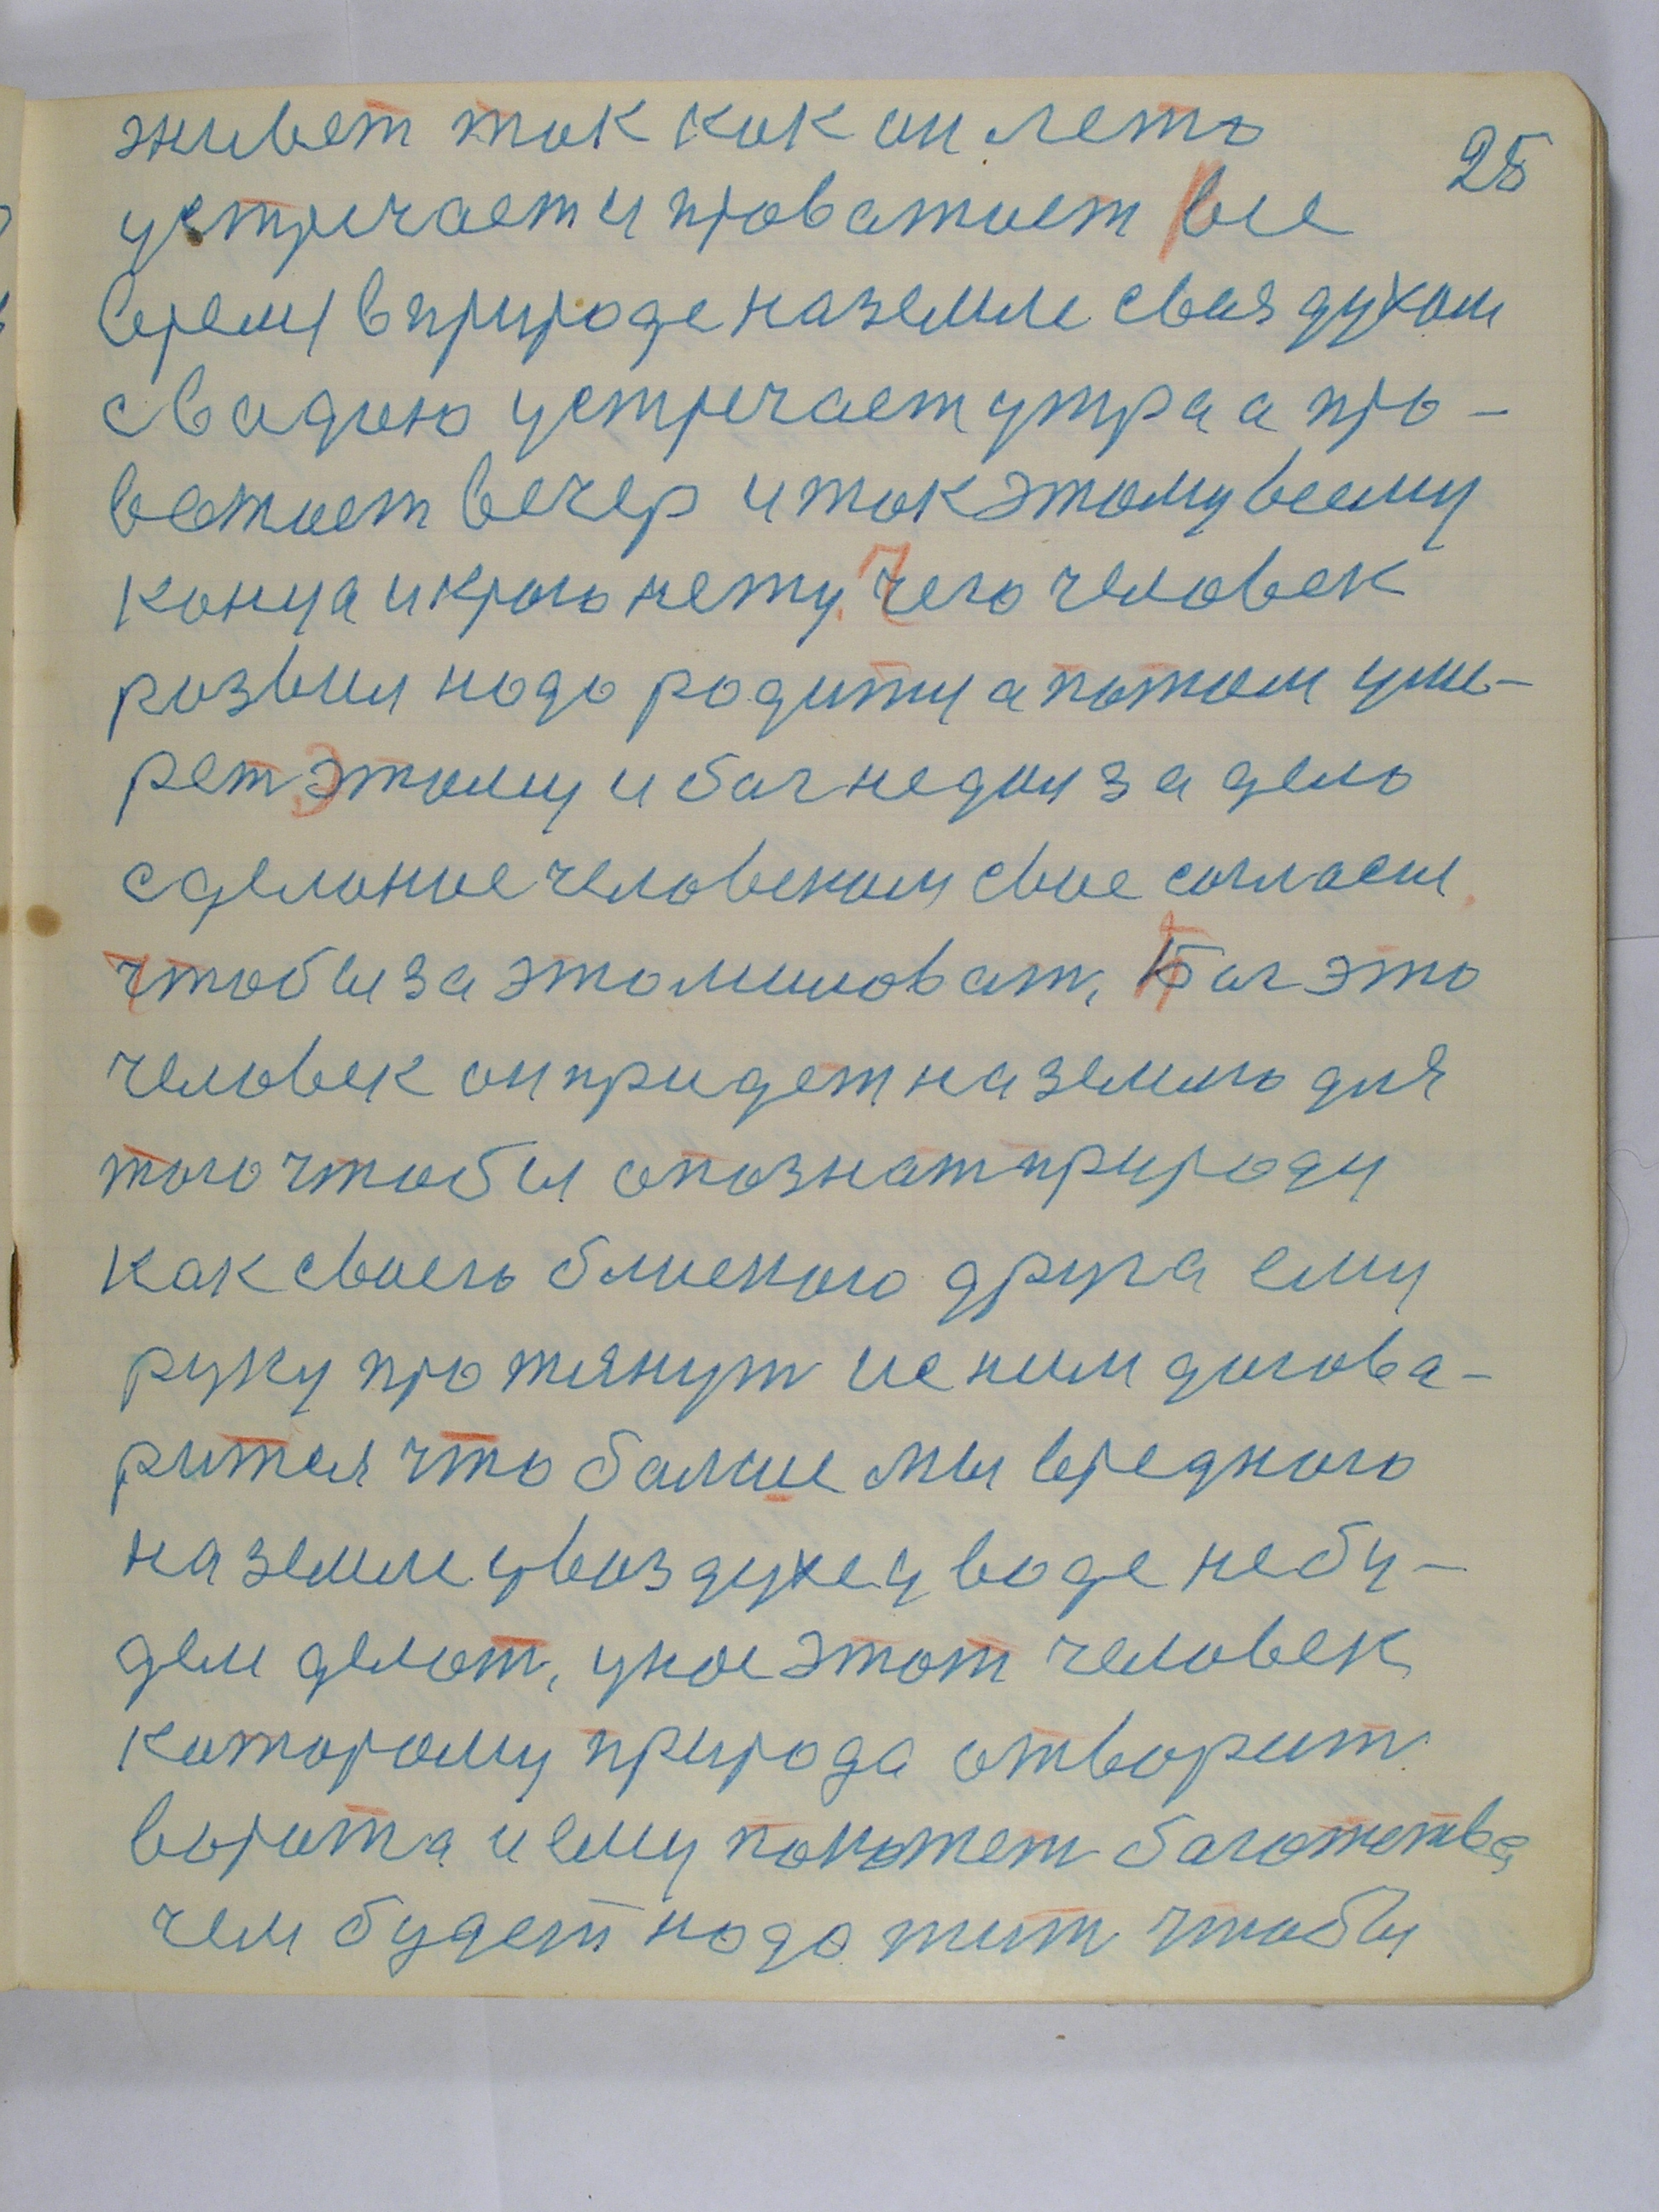 25
живет так как он лето
устричает и проважает все
время в природе на земле своя духам
с вадою устричает утра а про-
важает вечер и так этому всему
конца и краю нету. Чего человек
розвил надо родитца а патом уме-
рет этому и бог не дал за дело
сделаное человеком свое согласия
чтобы за это миловат, Бог это
человек он придет на землю для
того чтобы опознат природу
как своего блиского друга ему
руку протянут и с ним догова-
ритея что болше мы вредного
на земле у воздухе у воде не бу-
дем делат, у нас этот человек
каторому природа отворит
ворота и ему покажет багатства
чем будет надо жит чтобы